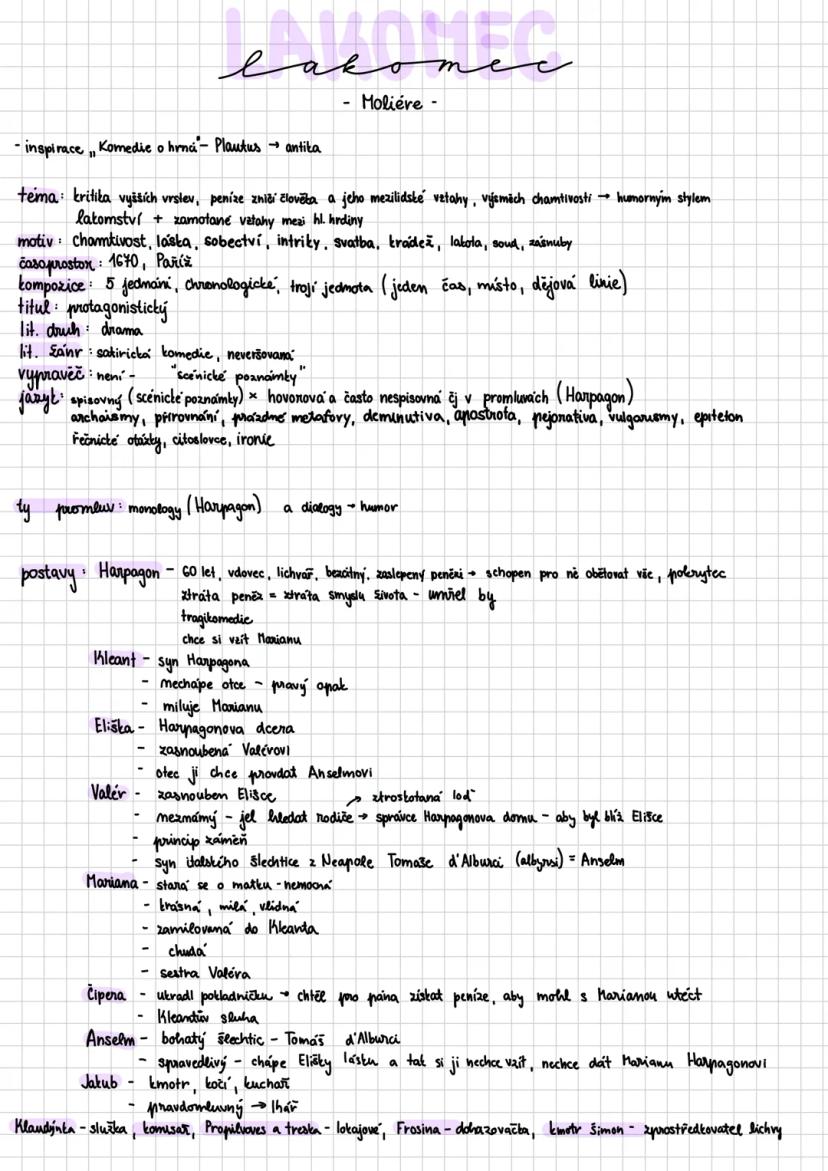 LAKOMEC
lakomec
- Moliére -
- inspirace „Komedie o hrnci" - Plautus → antika
téma: kritika vyšších vrstev, peníze zničí člověka a jeho mezilidské vztahy, výsměch chamtivosti → humorným stylem
lakomství + zamotané vztahy mezi hl. hrdiny
motiv: chamtivost, láska, sobectví, intriky, svatba, krádež, lakota, soud, zásnuby
časoprostor: 1670, Paříž
kompozice: 5 jednání, chronologické, trojí jednota (jeden čas, místo, dějová linie)
titul: protagonistický
lit. druh: drama
lit. žánr: satirická komedie, neveršovaná
vypravěč: není - "scénické poznámky"
jazyk: spisovný (scénické poznámky) × hovorová a často nespisovná čj v promluvách (Harpagon)
archaismy, přirovnání, prázdné metafory, deminutiva, apostrofa, pejorativa, vulgarismy, epiteton
řečnické otázky, citoslovce, ironie
ty promluv: monology (Harpagon) a dialogy → humor
postavy: Harpagon - 60 let, vdovec, lichvář, bezcitný, zaslepený penězi → schopen pro ně obětovat vše, pokrytec
ztráta peněz = ztráta smyslu života - umřel by
tragikomedie
chce si vzít Marianu
Kleant - syn Harpagona
- nechápe otce - pravý opak
- miluje Marianu
Eliška - Harpagonova dcera
- zasnoubená Valérovi
- otec ji chce provdat Anselmovi
Valér - zasnouben Elišce ↗ ztroskotaná loď
- neznámý - jel hledat rodiče → správce Harpagonova domu - aby byl blíž Elišce
- princip záměn
- syn italského šlechtice z Neapole Tomaše d'Alburci (albyrsi) = Anselm
Mariana - stará se o matku - nemocná
- krásná, milá, vlídná
- zamilovaná do Kleanta
- chudá
- sestra Valéra
Čipera - ukradl pokladničku → chtěl pro pána získat peníze, aby mohl s Marianou utéct
- Kleantův sluha
Anselm - bohatý šlechtic - Tomáš d'Alburci
- spravedlivý - chápe Elišky lásku a tak si ji nechce vzít, nechce dát Marianu Harpagonovi
Jakub - kmotr, kočí, kuchař
- pravdomluvný → lhář
Klaudýnka - služka, komisař, Propilvoves a treska - lokajové, Frosina - dohazovačka, kmotr Šimon - zprostředkovatel lichvy